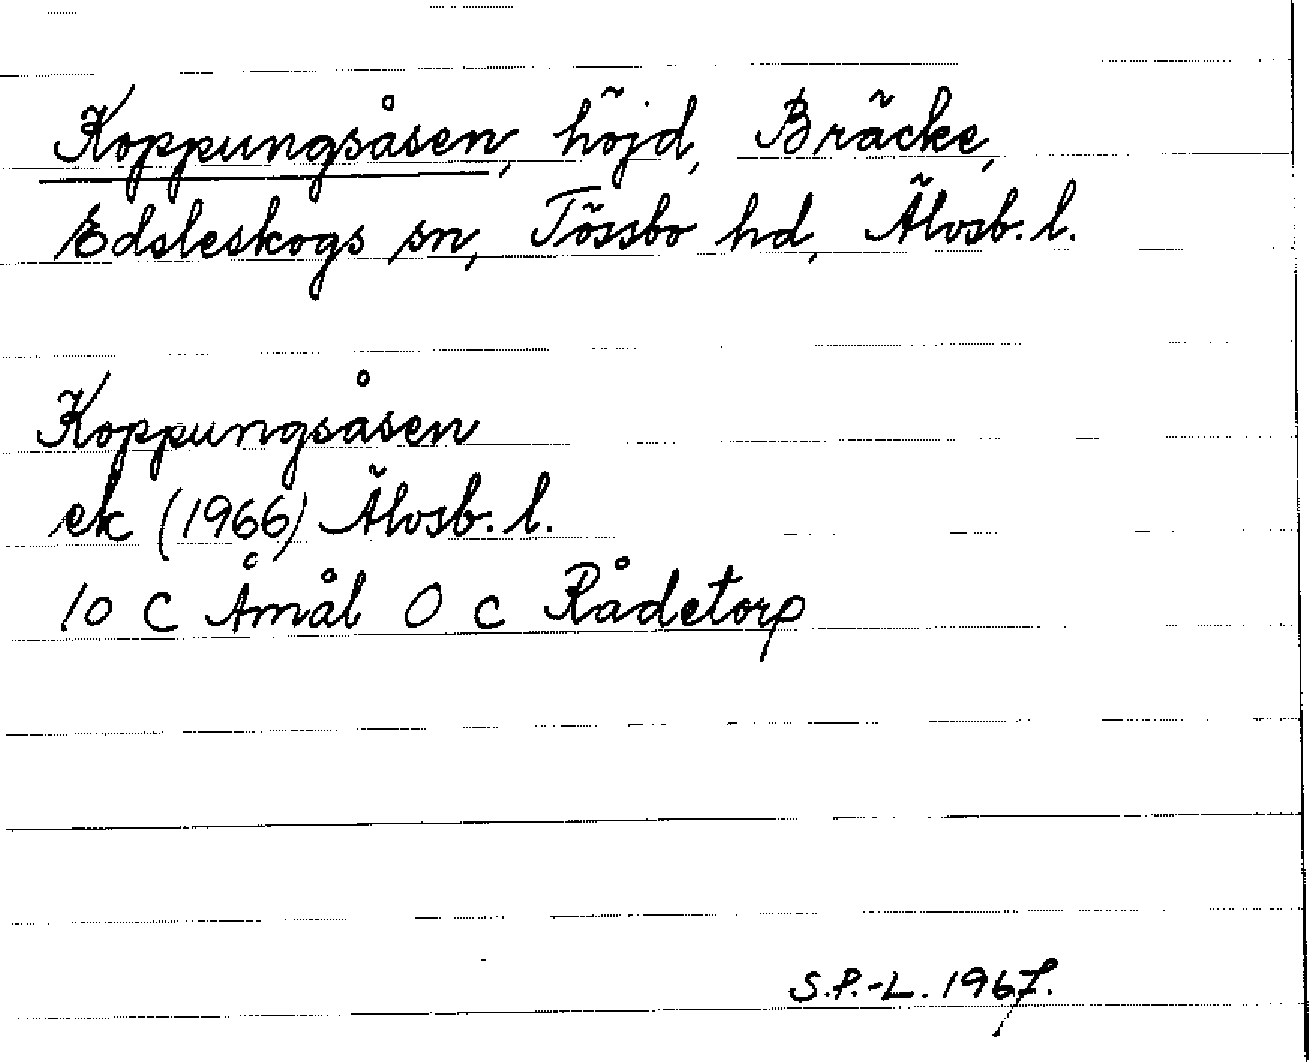 Koppungsåsen, höjd, Bräcke,
Edsleskogs sn, Tössbo hd, Älvsb. l.
Koppungsåsen
ek (1966) Älvsb. l.
10 C Åmål O c Rådetorp
S.P.-L. 1967.